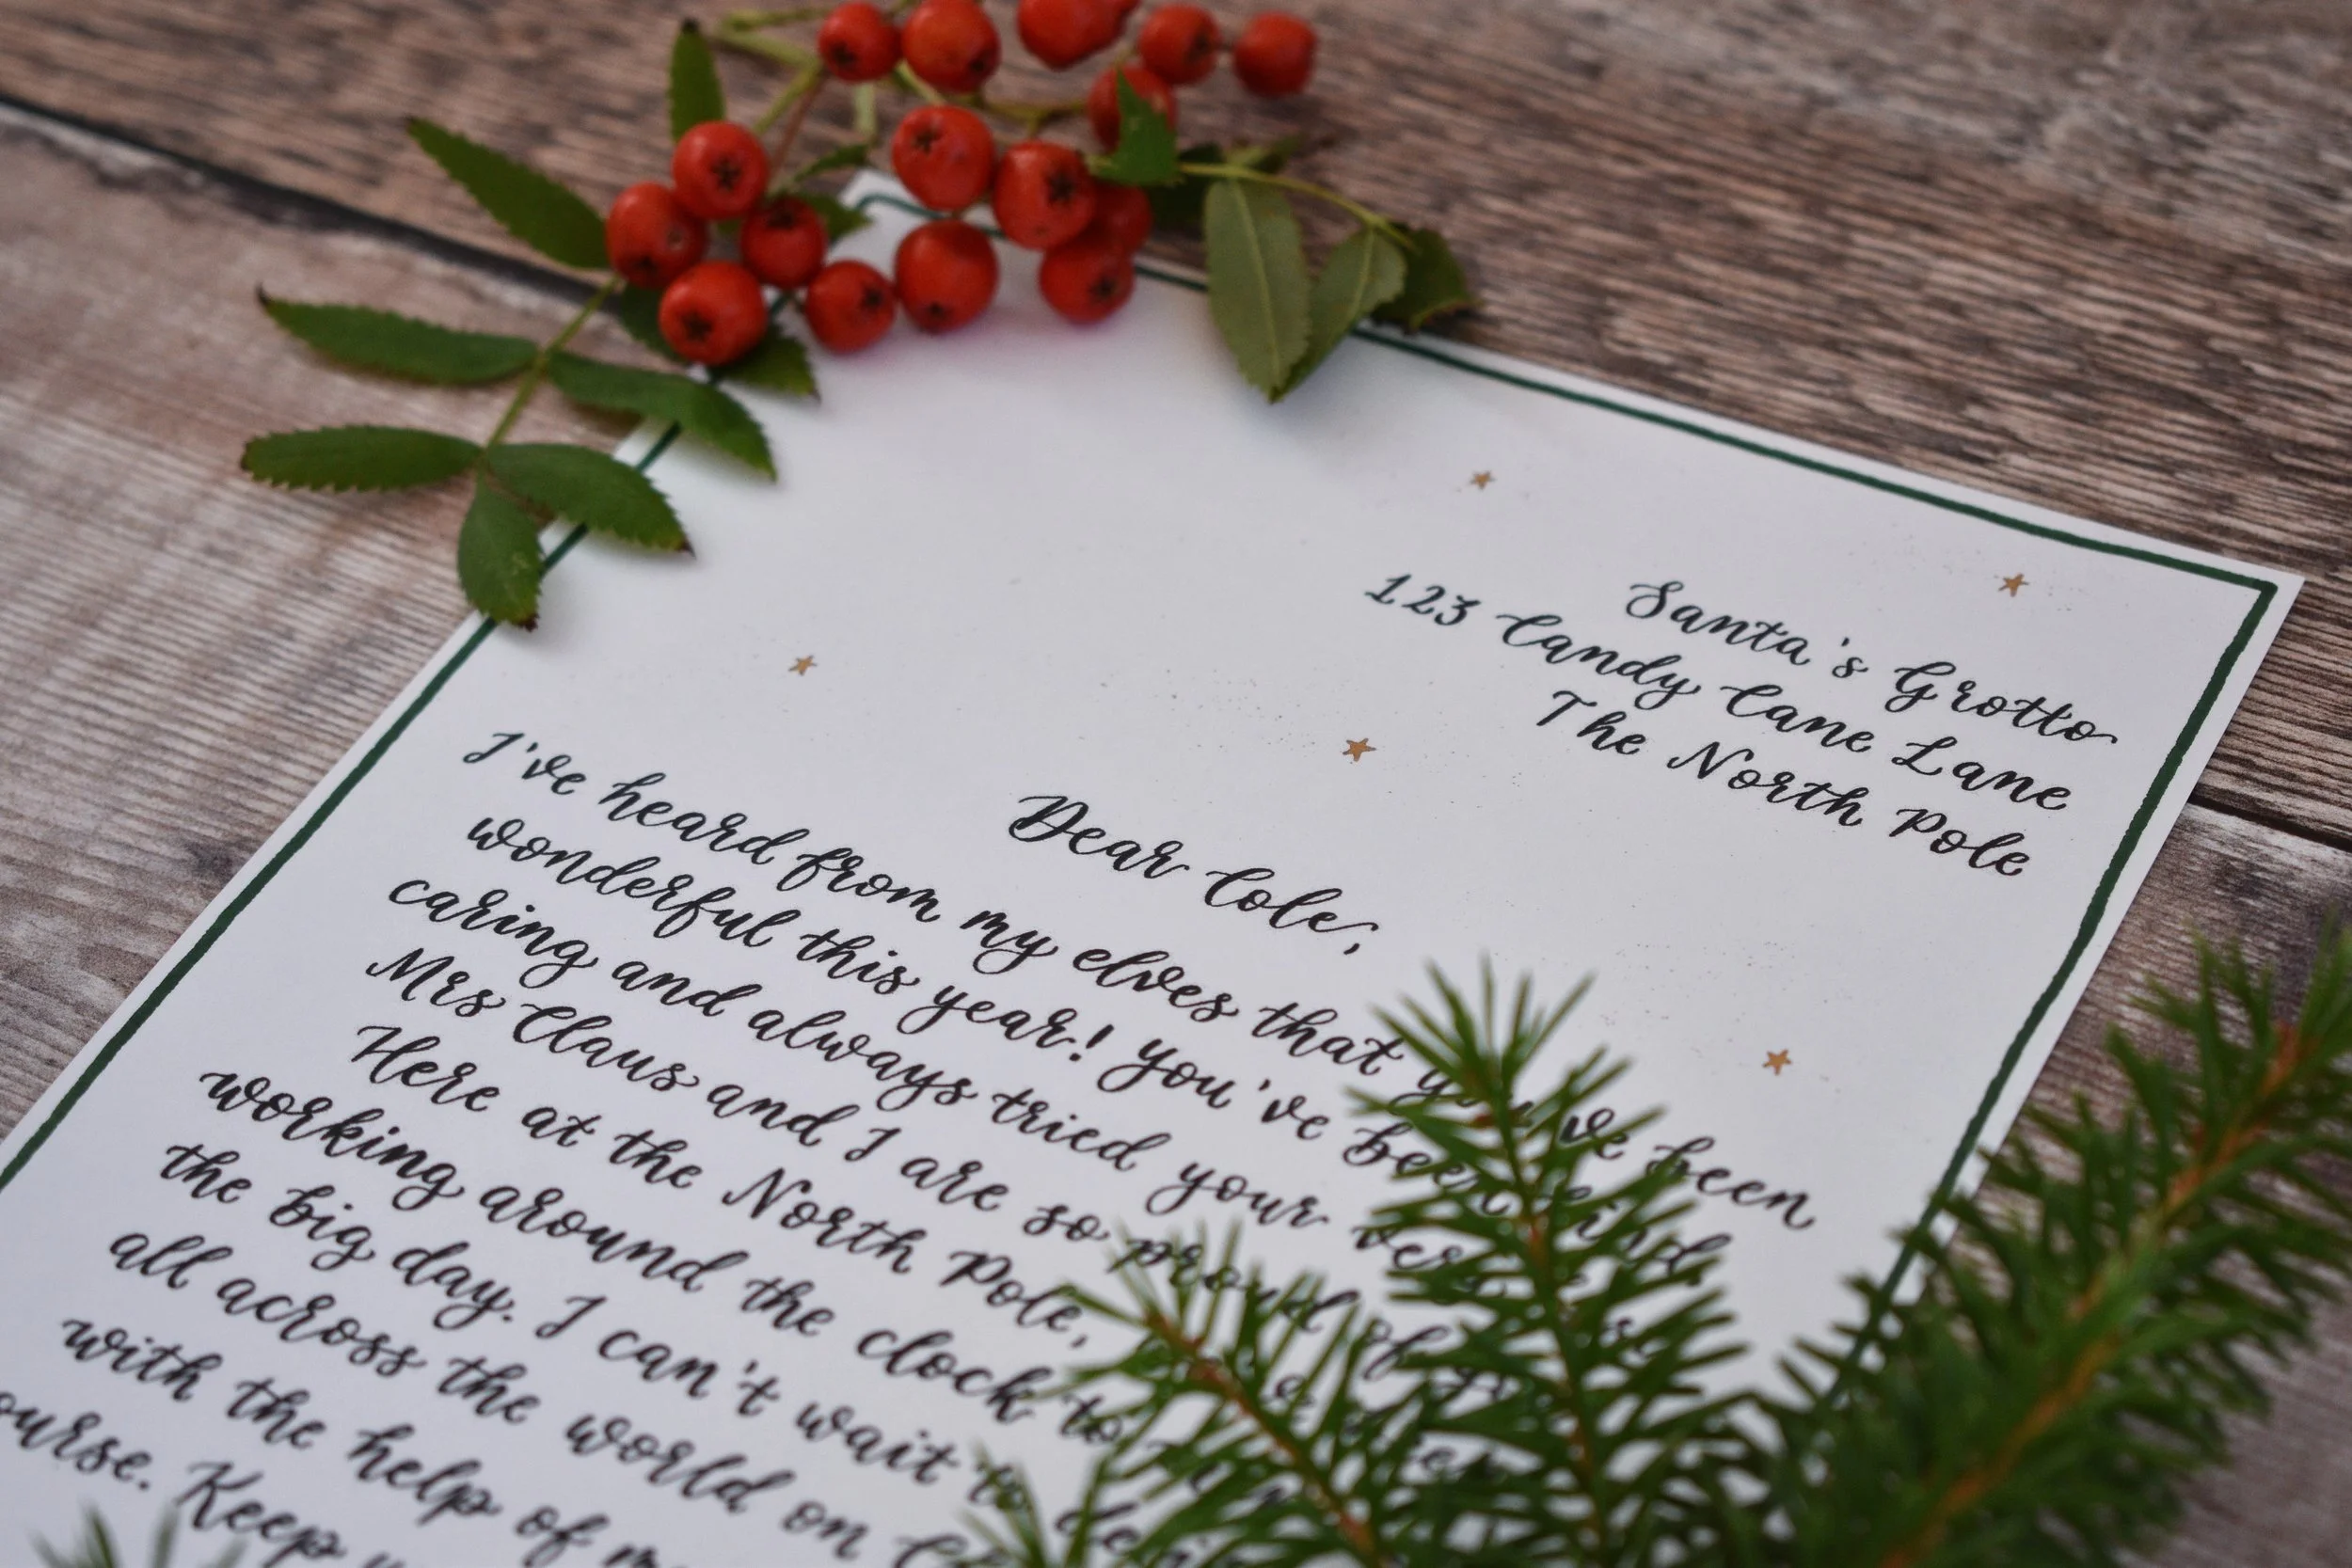 Santa's Grotto
123 Candy Cane Lane
The North Pole
Dear Cole,
I've heard from my elves that you've been
wonderful this year! You've been kind,
caring and always tried your very
Mrs Claus and I are so proud of
Here at the North Pole,
working around the clock to
the big day. I can't wait to
all across the world on
with the help of
Keep